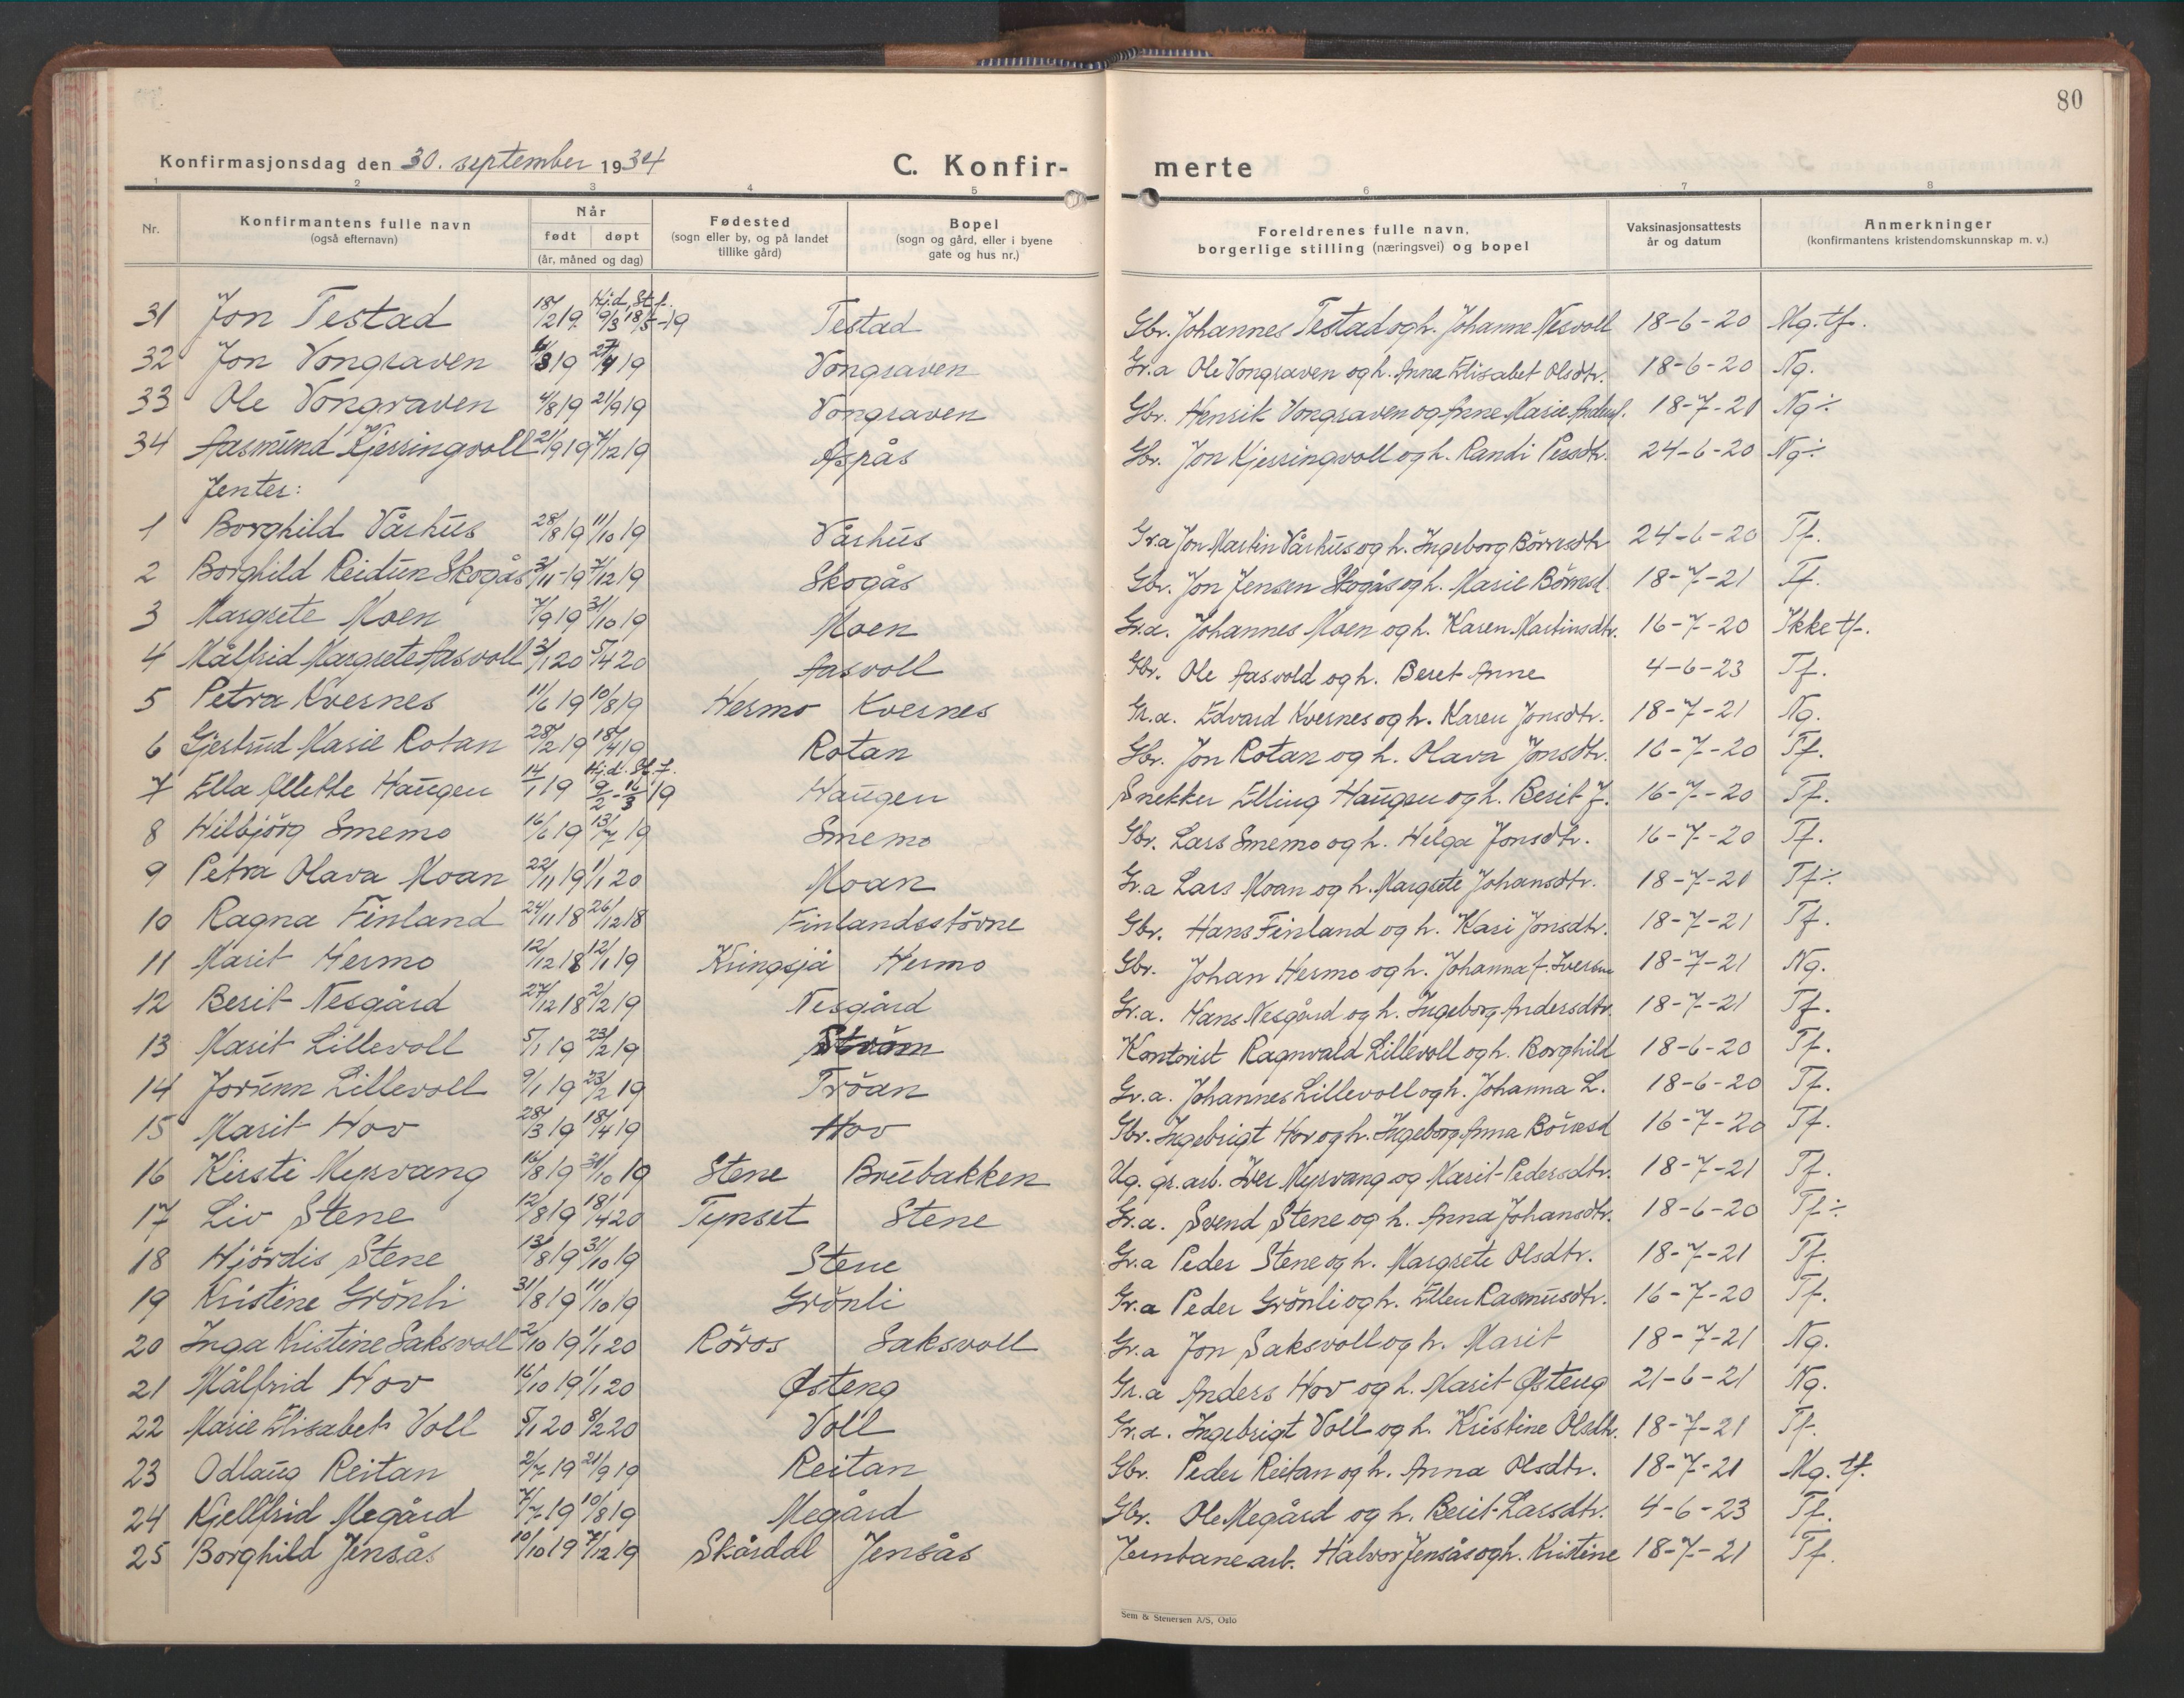 80
Konfirmasjonsdag den 30. september 1934 C. Konfir- merte
1 2 3 4 5 6 7 8
Nr. Konfirmantens fulle navn (også efternavn) Når født døpt (år, måned og dag) Fødested (sogn eller by, og på landet tillike gård) Bopel (sogn og gård, eller i byene gate og hus nr.) Foreldrenes fulle navn, borgerlige stilling (næringsvei) og bopel Vaksinasjonsattests år og datum Anmerkninger (konfirmantens kristendomskunnskap m. v.)
31 Jon Testad 18/2 19. Hj.d. St.f. 9/3 18/5-19 Testad Gbr. Johannes Testad og h. Johanne Nesvoll 18-6-20 Mg. tf.
32 Jon Vongraven /3 19 27/4 19 Vongraven Gr.a Ole Vongraven og h. Anna Elisabet Olsdtr. 18-6-20 Ng.
33 Ole Vongraven 4/8 19 21/9 19 Vongraven Gbr. Henrik Vongraven og Anne Marie 18-7-21 Ng÷
34 Aasmund Kjerringvoll 21/9 19 7/12 19 Aspås Gbr. Jon Kjerringvoll og h. Randi 24-6-20 Ng÷
Jenter:
1 Borghild Vårhus 28/8 19 11/10 19 Vårhus Gr.a Jon Martin Vårhus og h. Ingeborg Börresdtr 24-6-20 Tf.
2 Borghild Reidun Skogås 3/11-19 7/12 19 Skogås Gbr. Jon Jensen Skogås og h. Marie Börresd. 18-7-21 Tf.
3 Margrete Moen 7/9 19 31/10 19 Moen Gr.a. Johannes Moen og h. Karen Martinsdtr. 16-7-20 Ikke tf.
4 Målfrid Margrete Aasvoll 3/1 20 5/4 20 Aasvoll Gbr. Ole Aasvold og h. Beret Anne 4-6-23 Tf.
5 Petra Kvernes 11/6 19 10/8 19 Hermo Kvernes Gr.a. Edvard Kvernes og h. Karen Jonsdtr. 18-7-21 Ng.
6 Gjertrud Marie Rotan 28/2 19 18/4 19 Rotan Gbr. Jon Rotan og h. Olava Jonsdtr. 16-7-20 Tf.
7 Ella Allette Haugen 14/1 19 Hj.d. St.f. 9/2-16/3 19 Haugen Snekker Elling Haugen og h. Berit J. 16-7-20 Tf.
8 Hilbjörg Smemo 16/6 19 13/7 19 Smemo Gbr. Lars Smemo og h. Helga Jonsdtr. 16-7-20 Tf.
9 Petra Olava Moan 22/11 19 1/1 20 Moan Gr.a Lars Moan og h. Margrete Johansdtr. 18-7-21 Tf÷
10 Ragna Finland 24/11 18 26/12 18 Finlandsstörne Gbr. Hans Finland og h. Kari Jonsdtr. 18-7-21 Tf.
11 Marit Hermo 12/12 18 12/1 19 Kringsjå Hermo Gbr. Johan Hermo og h. Johanna f. Iversen 18-7-21 Ng.
12 Berit Nesgård 27/12 18 2/2 19 Nesgård Gr.a. Hans Nesgård og h. Ingeborg Andersdtr. 18-7-21 Tf.
13 Marit Lillevoll 5/1 19 23/2 19 Kontorist Ragnvald Lillevoll og h. Borghild 18-6-20 Tf.
14 Jorunn Lillevoll 9/1 19 23/2 19 Tröan Gr.a. Johannes Lillevoll og h. Johanna L. 18-6-20 Tf.
15 Marit Hov 28/3 19 18/4 19 Hov Gbr. Ingebrigt Hov og h. Ingeborg Anna Börresd 16-7-20 Tf.
16 Kirsti Myrvang 16/8 19 31/10 19 Stene Brubakken Ug. gr. arb. Iver Myrvang og Marit Pedersdtr. 18-7-21 Tf.
17 Liv Stene 12/8 19 18/4 20 Tynset Stene Gr.a. Svend Stene og h. Anna Johansdtr. 18-6-20 Tf÷
18 Hjördis Stene 13/8 19 31/10 19 Stene Gr.a Peder Stene og h. Margrete Olsdtr. 18-7-21 Tf.
19 Kristine Grönli 31/8 19 11/10 19 Grönli Gr.a Peder Grönli og h. Ellen Rasmusdtr. 16-7-20 Tf.
20 Inga Kristine Saksvoll 2/10 19 1/1 20 Röros Saksvoll Gr.a Jon Saksvoll og h. Marit 18-7-21 Ng.
21 Målfrid Hov 16/10 19 1/1 20 Østeng Gr.a Anders Hov og h. Marit Østeng 21-6-21 Ng.
22 Marie Elisabet Voll 5/1 20 8/2 20 Voll Gr.a. Ingebrigt Voll og h. Kristine Olsdtr. 18-7-21 Tf.
23 Odlaug Reitan 2/7 19 21/9 19 Reitan Gbr. Peder Reitan og h. Anna Olsdtr. 18-7-21 Mg. tf.
24 Kjellfrid Megård 7/7-19 10/8 19 Megård Gbr. Ole Megård og h. Berit Larsdtr. 4-6-23 Tf.
25 Borghild Jensås 10/10 19 7/12 19 Skårdal Jensås Jernbanearb. Halvor Jensås og h. Kristine 18-7-21 Tf.
Sem & Stenersen A/S, Oslo